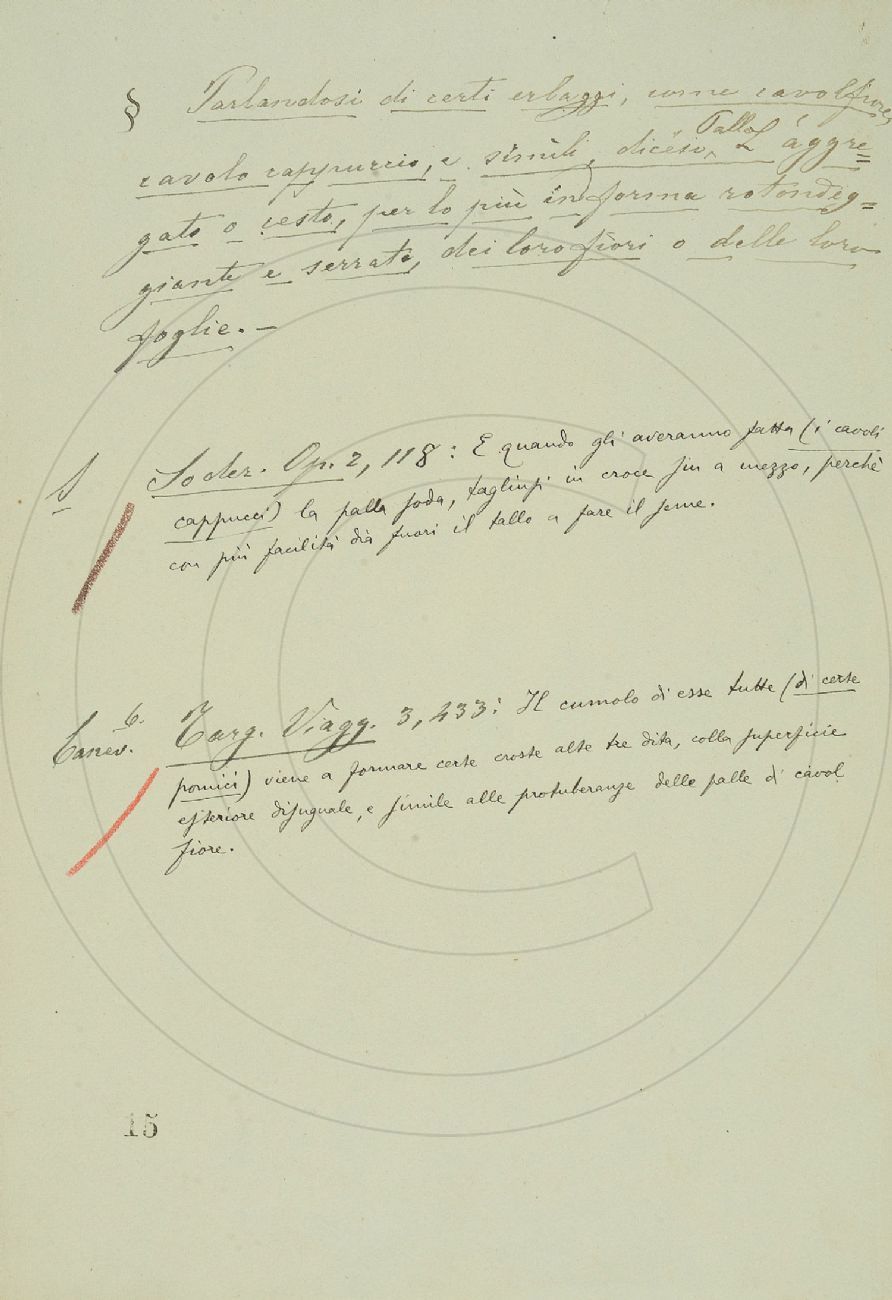 § Parlandosi di certi erbaggi, come cavolfiore,
cavolo cappuccio, e simili, dicesi Palla L'aggre=
gato o cesto, per lo più in forma rotondeg=
giante e serrata, dei loro fiori o delle loro
foglie. —
S Soder. Op. 2, 118: E quando gli averanno fatta (i cavoli
cappucci) la palla soda, taglinsi in croce sin a mezzo, perchè
con più facilità dia fuori il tallo a fare il seme.
Canev. Targ. Viagg. 3, 433: Il cumolo di esse tutte (di certe
pomici) viene a formare certe croste alte tre dita, colla superficie
esteriore disuguale, e simile alle protuberanze delle palle di cavol
fiore.
15